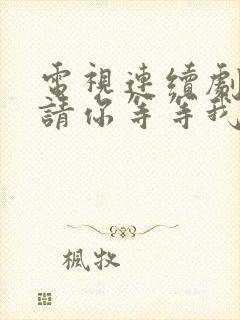 電視連續劇
請你等等我
楓牧